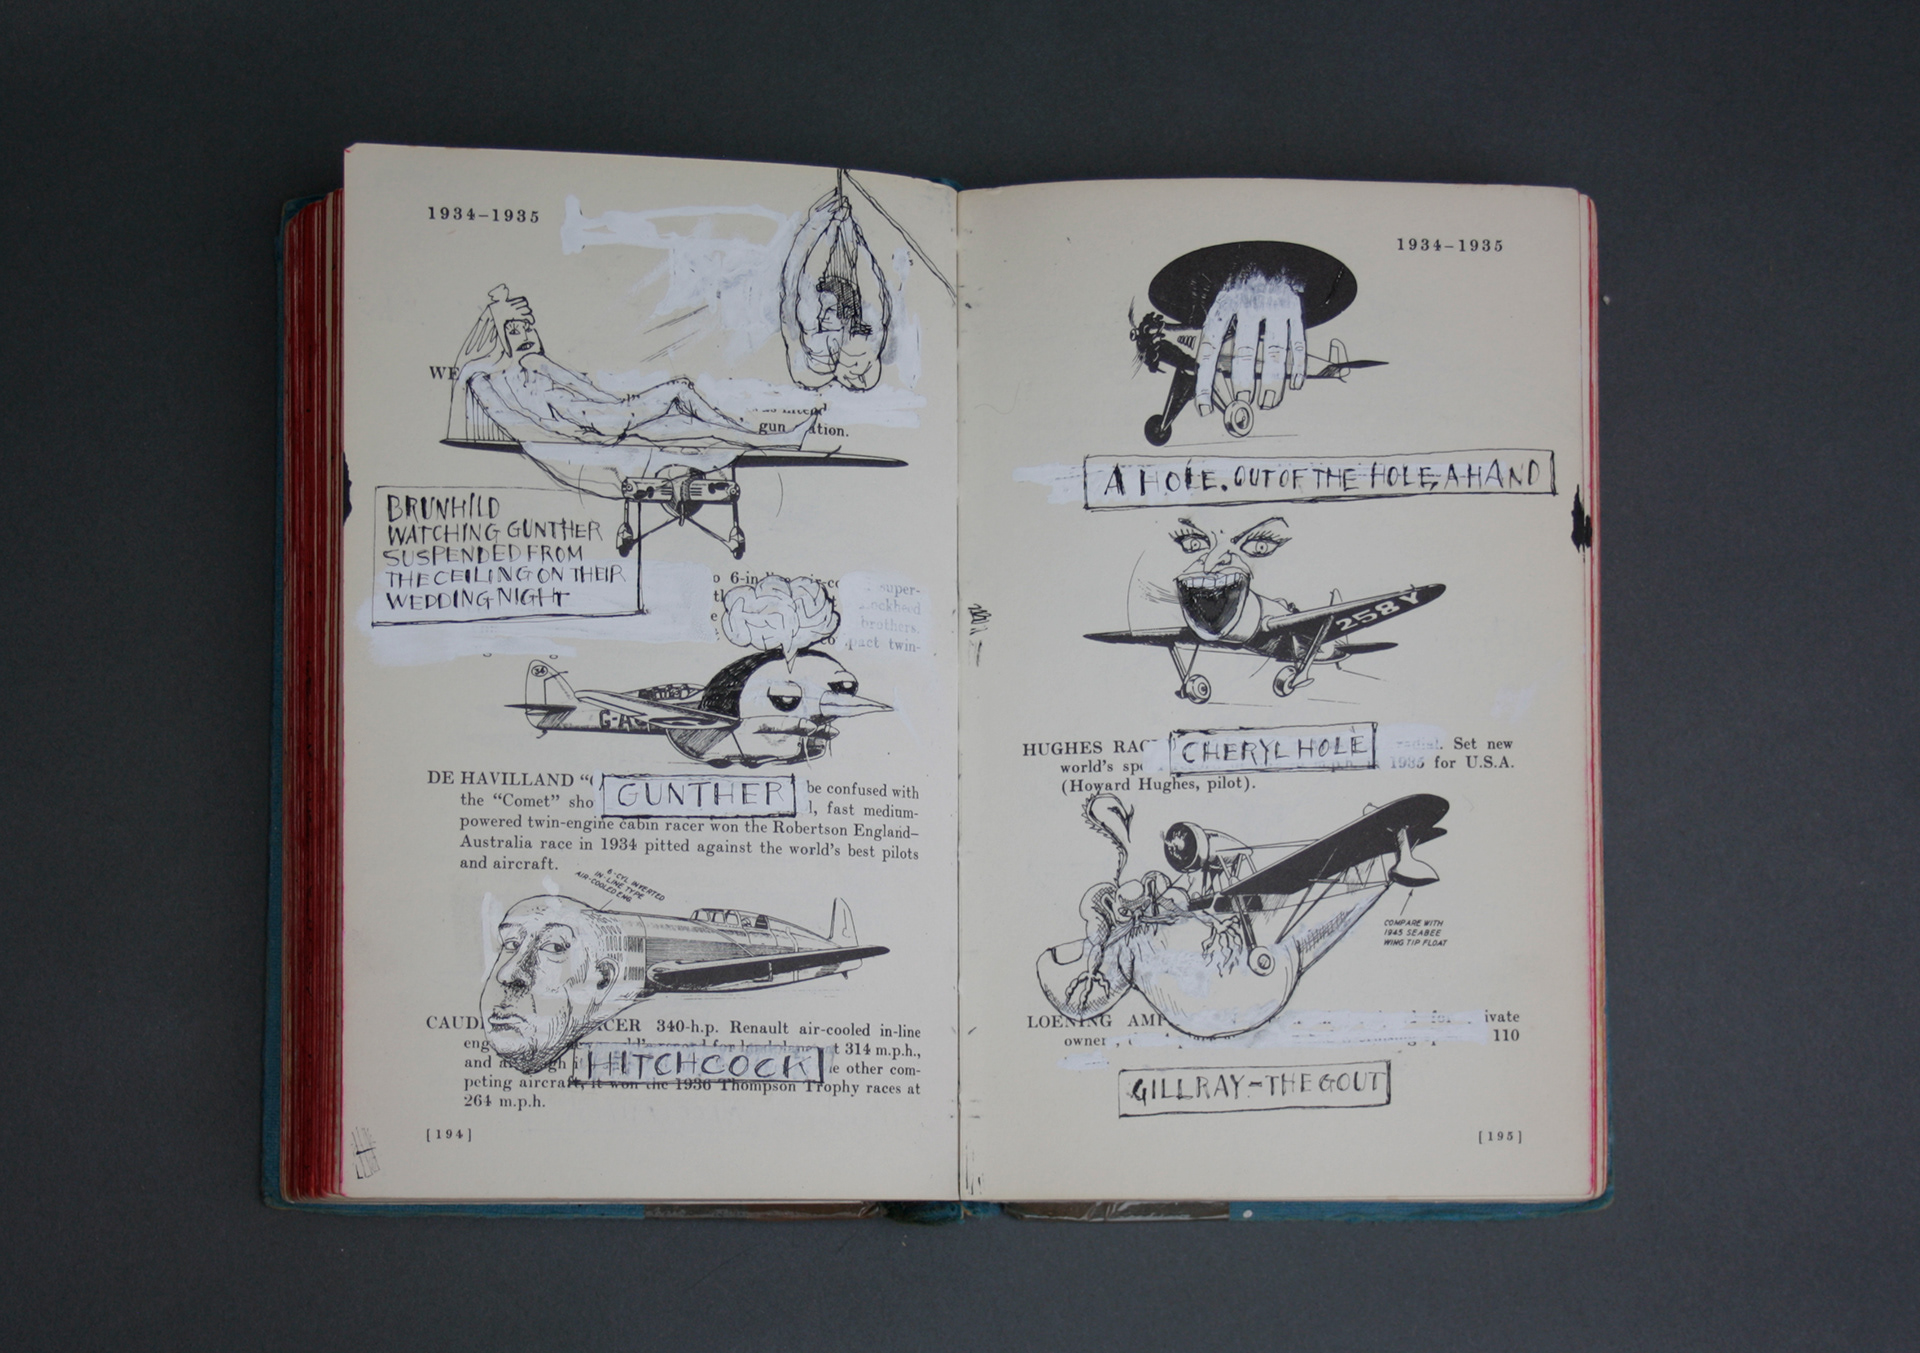 1934–1935
WE
gun
BRUNHILD
WATCHING GUNTHER
SUSPENDED FROM
THE CEILING ON THEIR
WEDDING NIGHT
6-in
super-
brothers.
twin-
34
G-A
DE HAVILLAND “
GUNTHER
be confused with
the “Comet”
fast medium-
powered twin-engine cabin racer won the Robertson England–
Australia race in 1934 pitted against the world's best pilots
and aircraft.
6-CYL INVERTED
IN-LINE TYPE
AIR-COOLED ENG
340-h.p. Renault air-cooled in-line
314 m.p.h.,
and
HITCHCOCK
other com-
peting aircraft, it won the 1936 Thompson Trophy races at
264 m.p.h.
[194]
1934–1935
A HOLE. OUT OF THE HOLE, A HAND
258Y
HUGHES
CHERYL HOLE
radial. Set new
world's
1935 for U.S.A.
(Howard Hughes, pilot).
COMPARE WITH
1945 SEABEE
WING TIP FLOAT
LOENING
owner
110
GILLRAY – THE GOUT
[195]